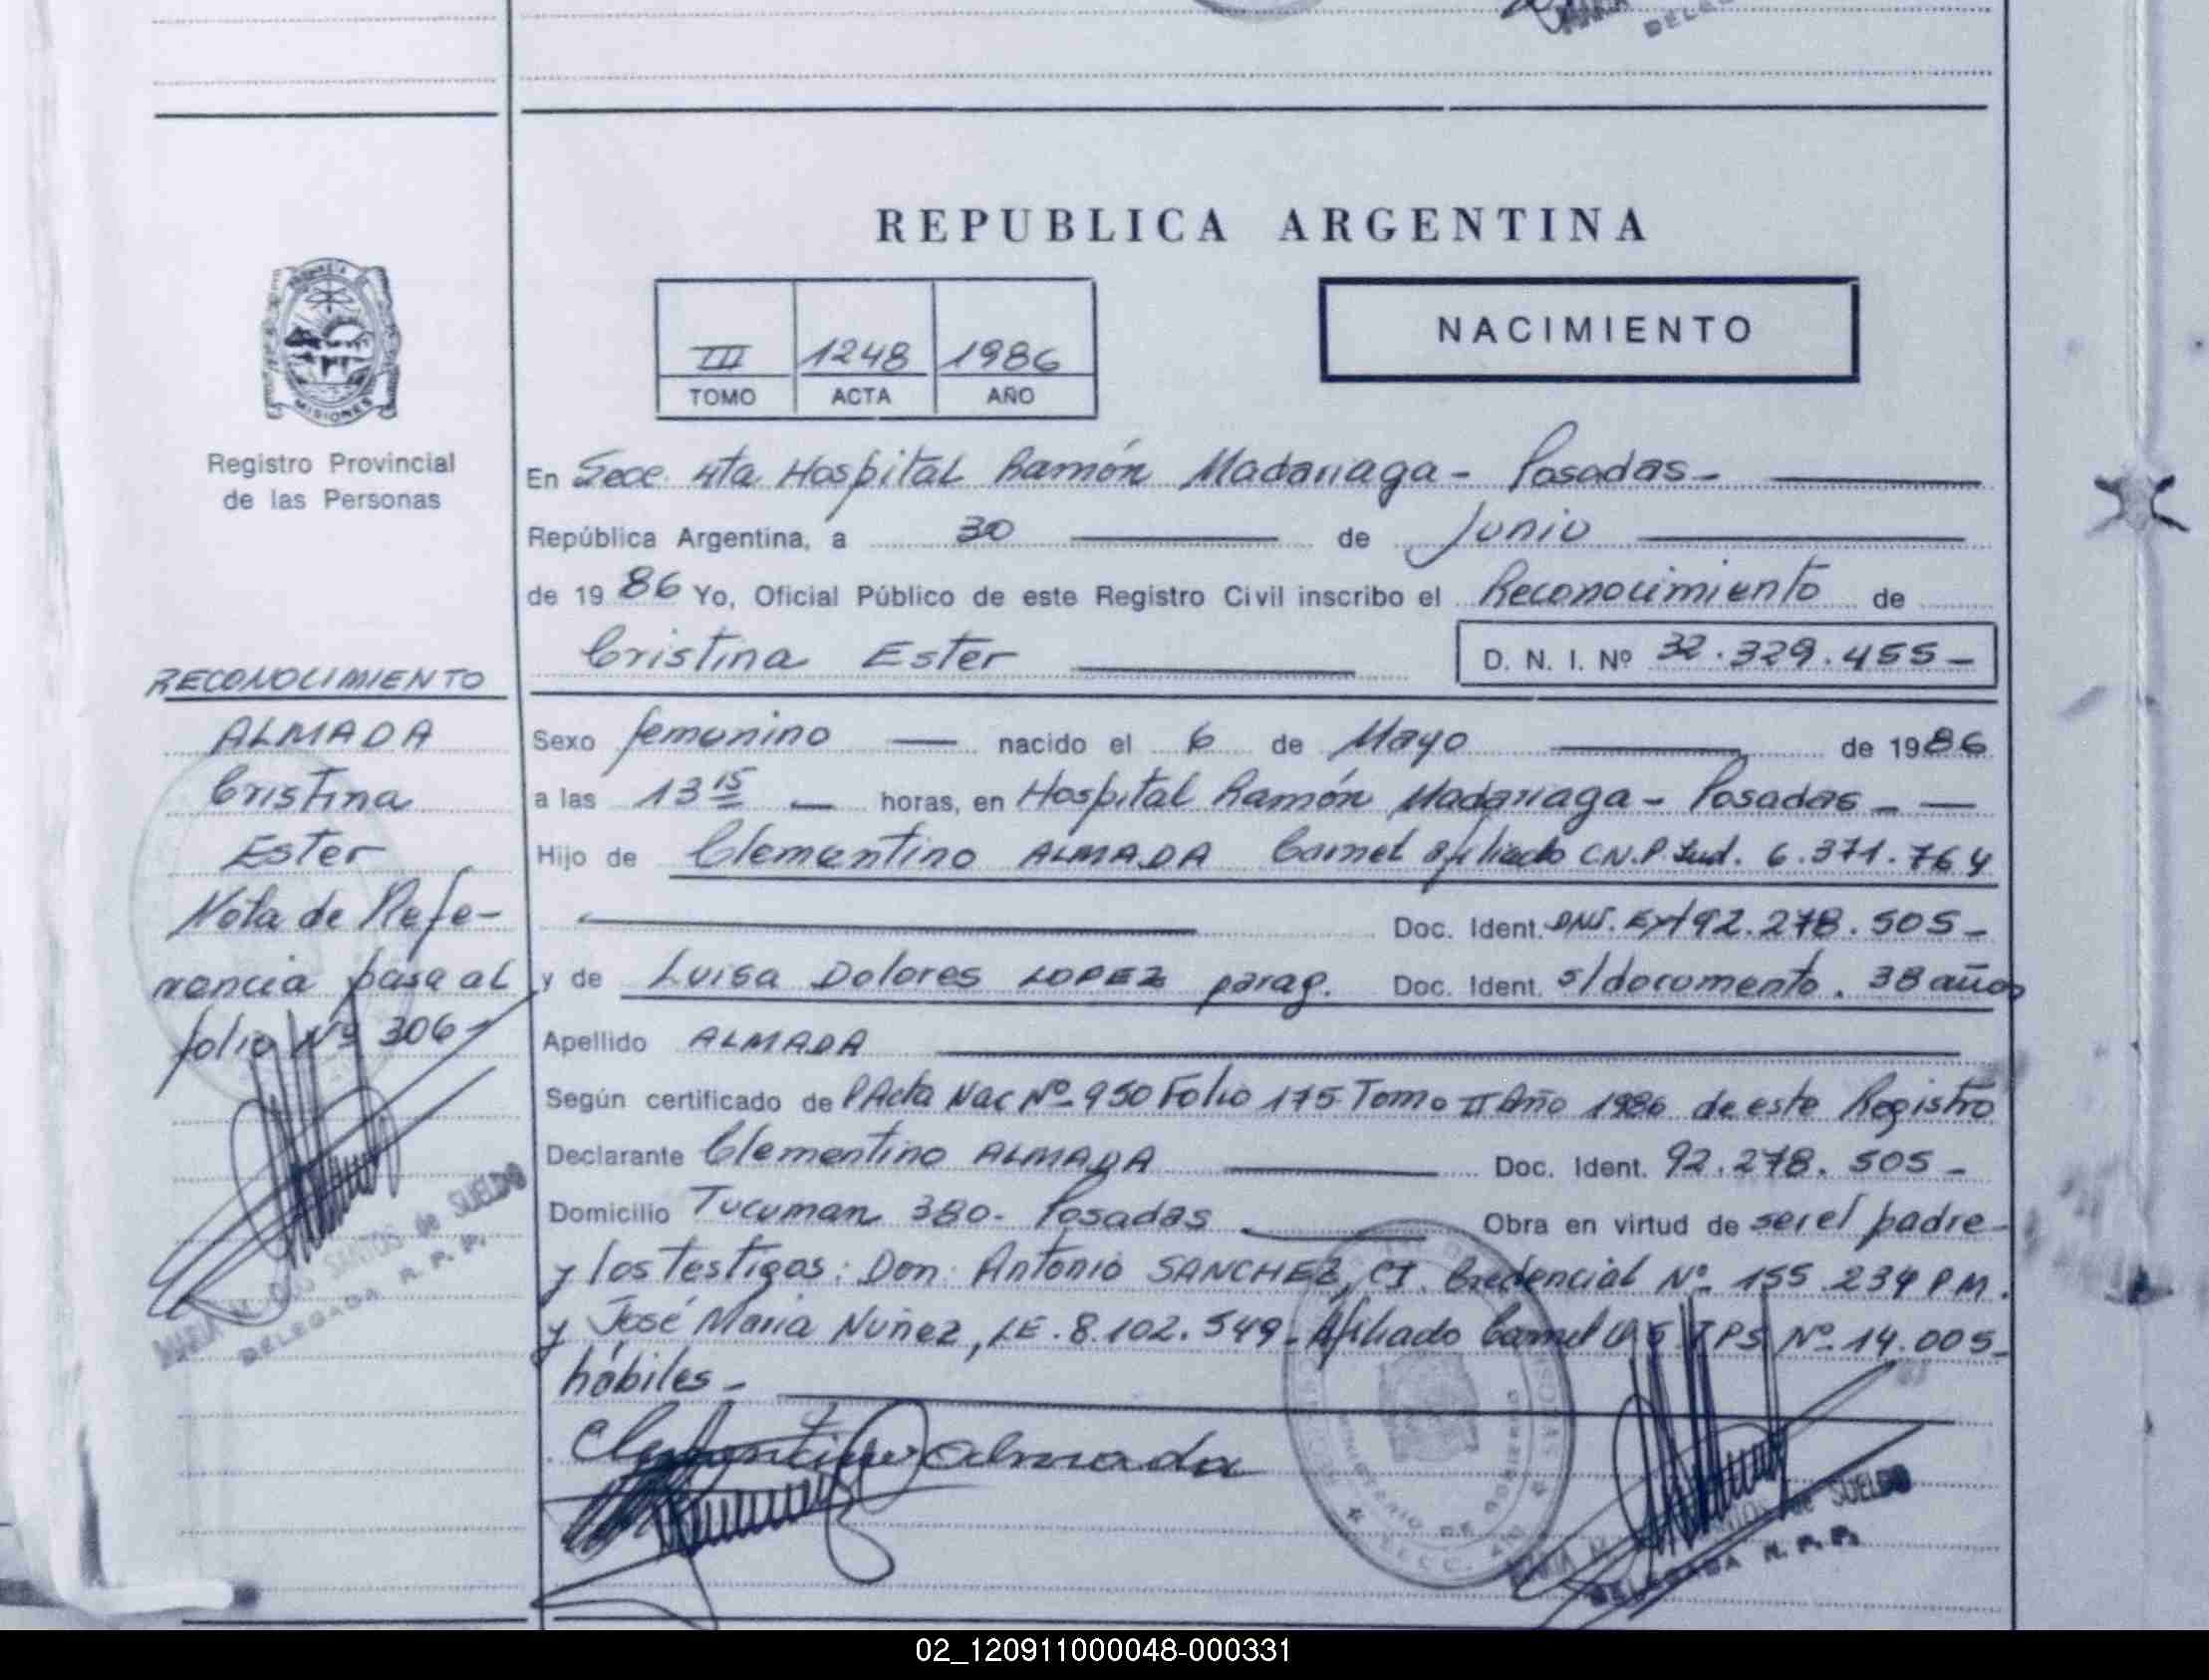 REPUBLICA ARGENTINA
III 1248 1986
TOMO ACTA AÑO
NACIMIENTO
MISIONES
Registro Provincial
de las Personas
En Secc. 4ta Hospital Ramón Madariaga - Posadas -
República Argentina, a 30 de Junio
de 1986 Yo, Oficial Público de este Registro Civil inscribo el Reconocimiento de
Cristina Ester D. N. I. Nº 32.329.455-
RECONOCIMIENTO
ALMADA
Cristina
Ester
Nota de Refe-
rencia pasa al
folio Nº 306-
MARIA SANTOS de SUELDO
DELEGADA R. P. P.
Sexo femenino nacido el 6 de Mayo de 1986
a las 13 15 horas, en Hospital Ramón Madariaga - Posadas -
Hijo de Clementino ALMADA Carnet afiliado C.N.P. 6.371.764
Doc. Ident. DNI. Ext 92.278.505-
y de Luisa Dolores LOPEZ parag. Doc. Ident. s/documento. 38 años
Apellido ALMADA
Según certificado de Acta Nac Nº 950 Folio 175 Tomo II Año 1986 de este Registro
Declarante Clementino ALMADA Doc. Ident. 92.278.505-
Domicilio Tucuman 380- Posadas Obra en virtud de ser el padre-
y los testigos: Don Antonio SANCHEZ, CI. Credencial Nº 155.234 PM.
y José Maria Nuñez, LE. 8.102.549- Afiliado Carnet IPS Nº 14.005-
hábiles -
Clementino almada
MINISTERIO DE GOBIERNO
SECC.
SANTOS de SUELDO
DELEGADA R. P. P.
02_120911000048-000331